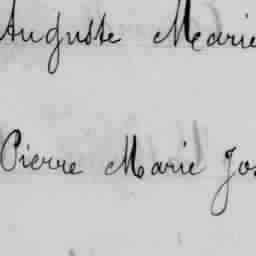 Auguste Marie
Pierre Marie Jos